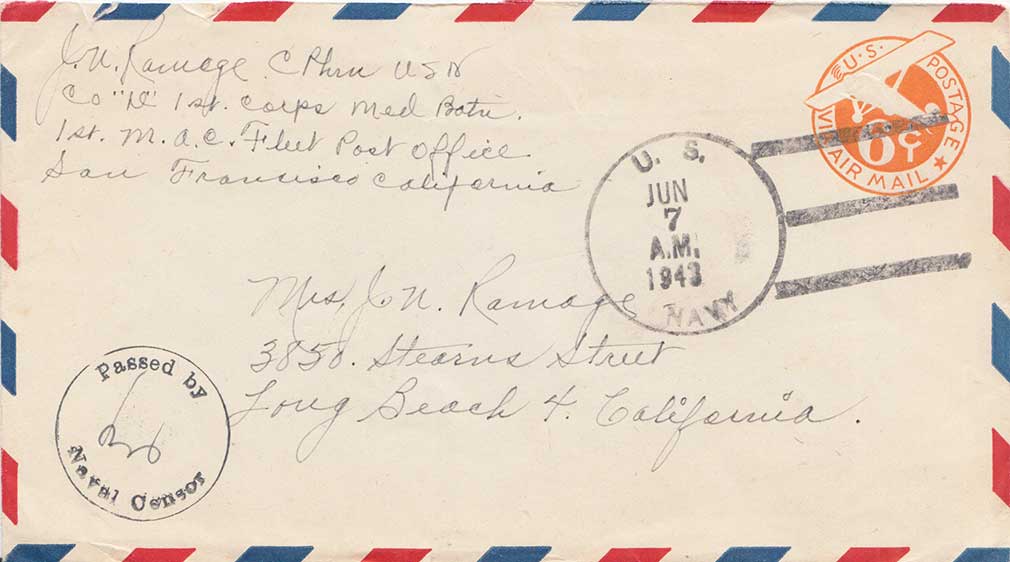 J. N. Ramage CPhm USN
Co "D" 1st. Corps Med Batn.
1st. M. A. C. Fleet Post Office
San Francisco California
U.S. POSTAGE
6¢
VIA AIR MAIL
U. S.
JUN
7
A.M.
1943
NAVY
Mrs. J. N. Ramage
3850. Stearns Street
Long Beach 4. California.
Passed by
Naval Censor